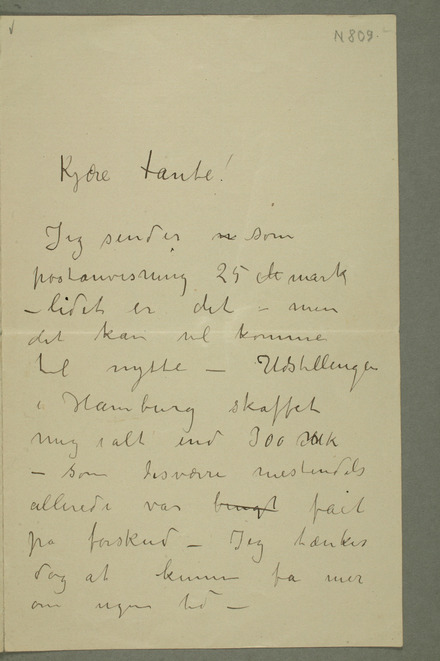 N 809.
Kjære tante!
Jeg sender som
postanvisning 25 mark
– lidet er det – men
det kan vel komme
til nytte – Udstillingen
i Hamburg skaffet
mig ialt ind 300 Mk
– som desværre mestendels
allerede var brugt fåit
på forskud – Jeg tænker
dog at kunne få mer
om nogen tid –